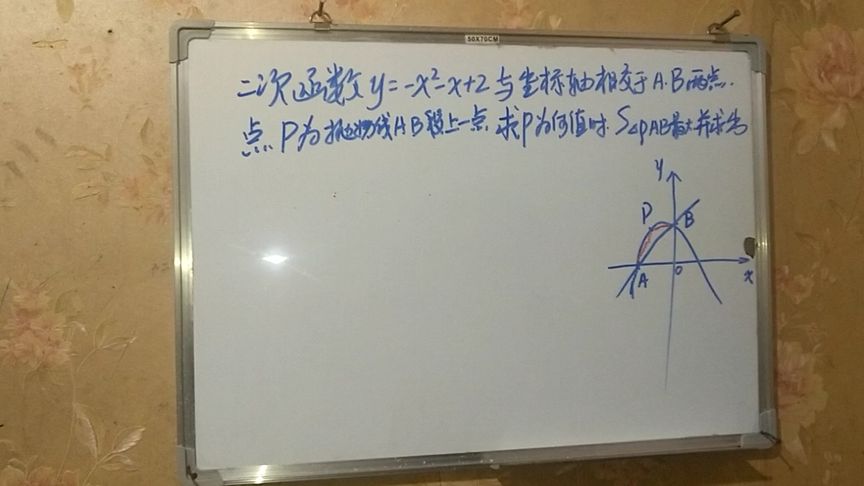 50X70CM
二次函数 y=-x²-x+2 与坐标轴相交于A.B两点.
点P为抛物线AB段上一点.求P为何值时.S△PAB最大并求出
y
P
B
A
O
x